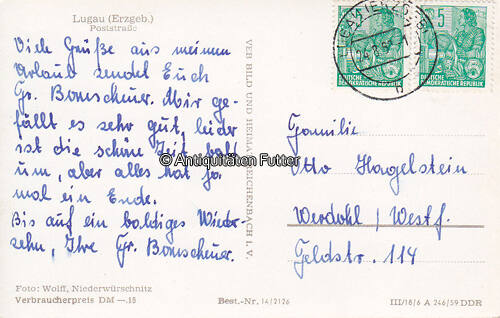 Lugau (Erzgeb.)
Poststraße
Viele Grüße aus meinem
Urlaub sendet Euch
Gr. Bomscheuer. Mir ge-
fällt es sehr gut, leider
ist die schöne Zeit bald
um, aber alles hat ja
mal ein Ende.
Bis auf ein baldiges Wieder-
sehn, Ihre Gr. Bomscheuer.
Foto: Wolff, Niederwürschnitz
Verbraucherpreis DM —.18
VEB BILD UND HEIMAT REICHENBACH I. V.
Best.-Nr. 14/2126
DEUTSCHE
DEMOKRATISCHE REPUBLIK
5
DEUTSCHE
DEMOKRATISCHE REPUBLIK
Familie
Otto Hagelstein
Werdohl / Westf.
Feldstr. 114
III/18/6 A 246/59 DDR
© Antiquitäten Futter